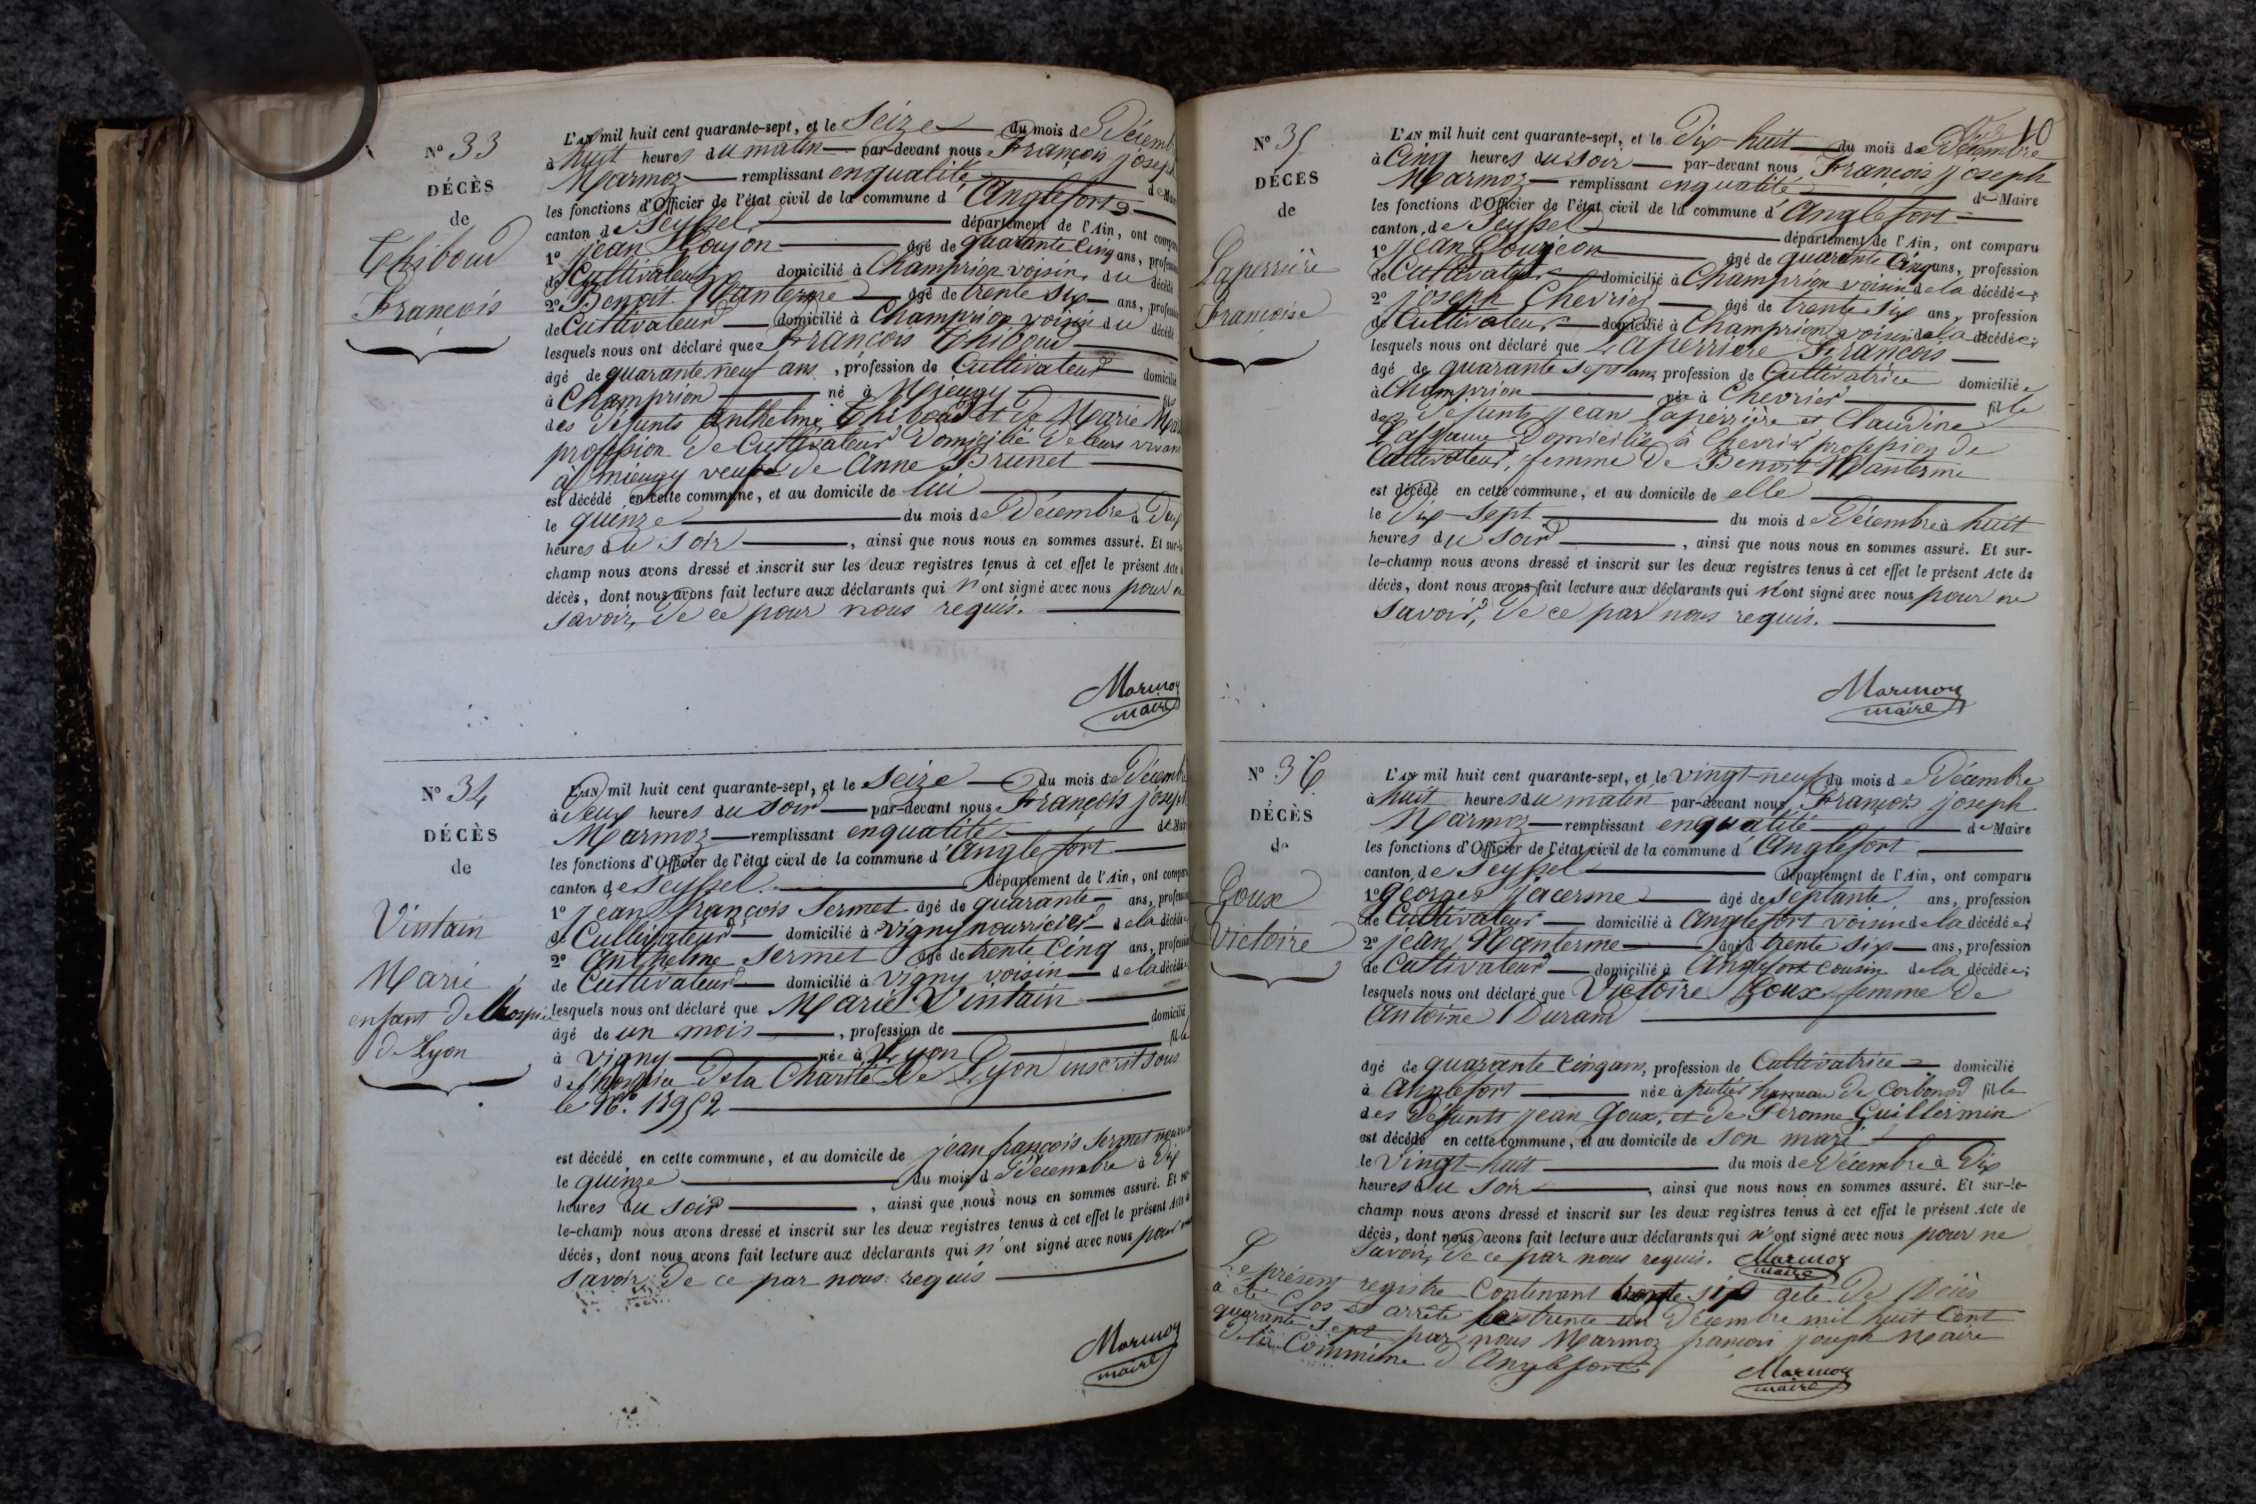 N° 33
DÉCÈS
de
Thiboud
François
L'AN mil huit cent quarante-sept, et le Seize du mois de Décemb
à huit heures du matin par-devant nous François joseph
Marmoz remplissant en qualité de Mai
les fonctions d'Officier de l'état civil de la commune d'Anglefort
canton de Seyssel département de l'Ain, ont compa
1° jean Goujon âgé de quarante Cinq ans, profession
de Cultivateur domicilié à Champrion voisin du décédé
2° Benoit Manterme âgé de trente six ans, profession
de Cultivateur domicilié à Champrion voisin du décédé
lesquels nous ont déclaré que François Thiboud
âgé de quarante neuf ans, profession de Cultivateur domicilié
à Champrion né à Mieugy fils
des défunts Anthelme Thiboud et de Marie
profession de Cultivateur Domicilié de leurs vivan
à mieugy veuf de Anne Brunet
est décédé en cette commune, et au domicile de lui
le quinze du mois de Décembre à Dix
heures du soir, ainsi que nous nous en sommes assuré. Et sur-le
champ nous avons dressé et inscrit sur les deux registres tenus à cet effet le présent Acte d
décès, dont nous avons fait lecture aux déclarants qui n'ont signé avec nous pour n
savoir, de ce pour nous requis.
Marmoz
maire
N° 34
DÉCÈS
de
Vintain
Marie
enfant de l'hospice
de Lyon
L'AN mil huit cent quarante-sept, et le Seize du mois de Décemb
à Deux heures du soir par-devant nous François joseph
Marmoz remplissant en qualité de Mair
les fonctions d'Officier de l'état civil de la commune d'Anglefort
canton de Seyssel département de l'Ain, ont compar
1° jean françois Sermet âgé de quarante ans, profession
de Cultivateur domicilié à vigny nourricier de la décédée
2° Anthelme Sermet âgé de trente Cinq ans, profession
de Cultivateur domicilié à vigny voisin de la décédée
lesquels nous ont déclaré que Marie Vintain
âgé de un mois, profession de domicilié
à vigny née à Lyon fille
de l'hospice de la Charité de Lyon inscrit sous
le N°. 13952
est décédé en cette commune, et au domicile de jean françois Sermet
le quinze du mois de Décembre à Dix
heures du soir, ainsi que nous nous en sommes assuré. Et sur
le-champ nous avons dressé et inscrit sur les deux registres tenus à cet effet le présent Acte de
décès, dont nous avons fait lecture aux déclarants qui n'ont signé avec nous pour
savoir de ce par nous requis
Marmoz
maire
10
N° 35
DÉCÈS
de
Laperrière
Françoise
L'AN mil huit cent quarante-sept, et le Dix-huit du mois de Décembre
à Cinq heures du soir par-devant nous François joseph
Marmoz remplissant en qualité de Maire
les fonctions d'Officier de l'état civil de la commune d'Anglefort
canton de Seyssel département de l'Ain, ont comparu
1° jean Goujeon âgé de quarante Cinq ans, profession
de Cultivateur domicilié à Champrion voisin de la décédée;
2° joseph Chevrier âgé de trente six ans, profession
de Cultivateur domicilié à Champrion voisin de la décédée;
lesquels nous ont déclaré que Laperrière François
âgé de quarante Sept ans, profession de Cultivatrice domiciliée
à Champrion née à Chevrier fille
des Défunts jean Laperrière et Claudine
Domicilié à Chevrier profession de
Cultivateur, femme de Benoit Manterme
est décédé en cette commune, et au domicile de elle
le Dix-Sept du mois de Décembre à huit
heures du soir, ainsi que nous nous en sommes assuré. Et sur-
le-champ nous avons dressé et inscrit sur les deux registres tenus à cet effet le présent Acte de
décès, dont nous avons fait lecture aux déclarants qui n'ont signé avec nous pour ne
savoir, de ce par nous requis.
Marmoz
maire
N° 36
DÉCÈS
de
Goux
Victoire
L'AN mil huit cent quarante-sept, et le vingt-neuf du mois de Décembre
à huit heures du matin par-devant nous François joseph
Marmoz remplissant en qualité de Maire
les fonctions d'Officier de l'état civil de la commune d'Anglefort
canton de Seyssel département de l'Ain, ont comparu
1° Georges jacerme âgé de Septante ans, profession
de Cultivateur domicilié à Anglefort voisin de la décédée;
2° jean Manterme âgé d trente six ans, profession
de Cultivateur domicilié à Anglefort cousin de la décédée;
lesquels nous ont déclaré que Victoire Goux femme de
Antoine Durand
âgé de quarante Cinq ans, profession de Cultivatrice domicilié
à Anglefort née à hameau de Corbonod fille
des Défunts jean Goux, et de Péronne Guillermin
est décédé en cette commune, et au domicile de son mari
le Vingt-huit du mois de Décembre à Dix
heures du soir, ainsi que nous nous en sommes assuré. Et sur-le-
champ nous avons dressé et inscrit sur les deux registres tenus à cet effet le présent Acte de
décès, dont nous avons fait lecture aux déclarants qui n'ont signé avec nous pour ne
savoir, de ce par nous requis. Marmoz
maire
Le présent registre Contenant trente six acte de Décès
a été Clos et arrêté le trente un Décembre mil huit Cent
quarante sept par nous Marmoz françois joseph Maire
de la Commune d'Anglefort
Marmoz
maire